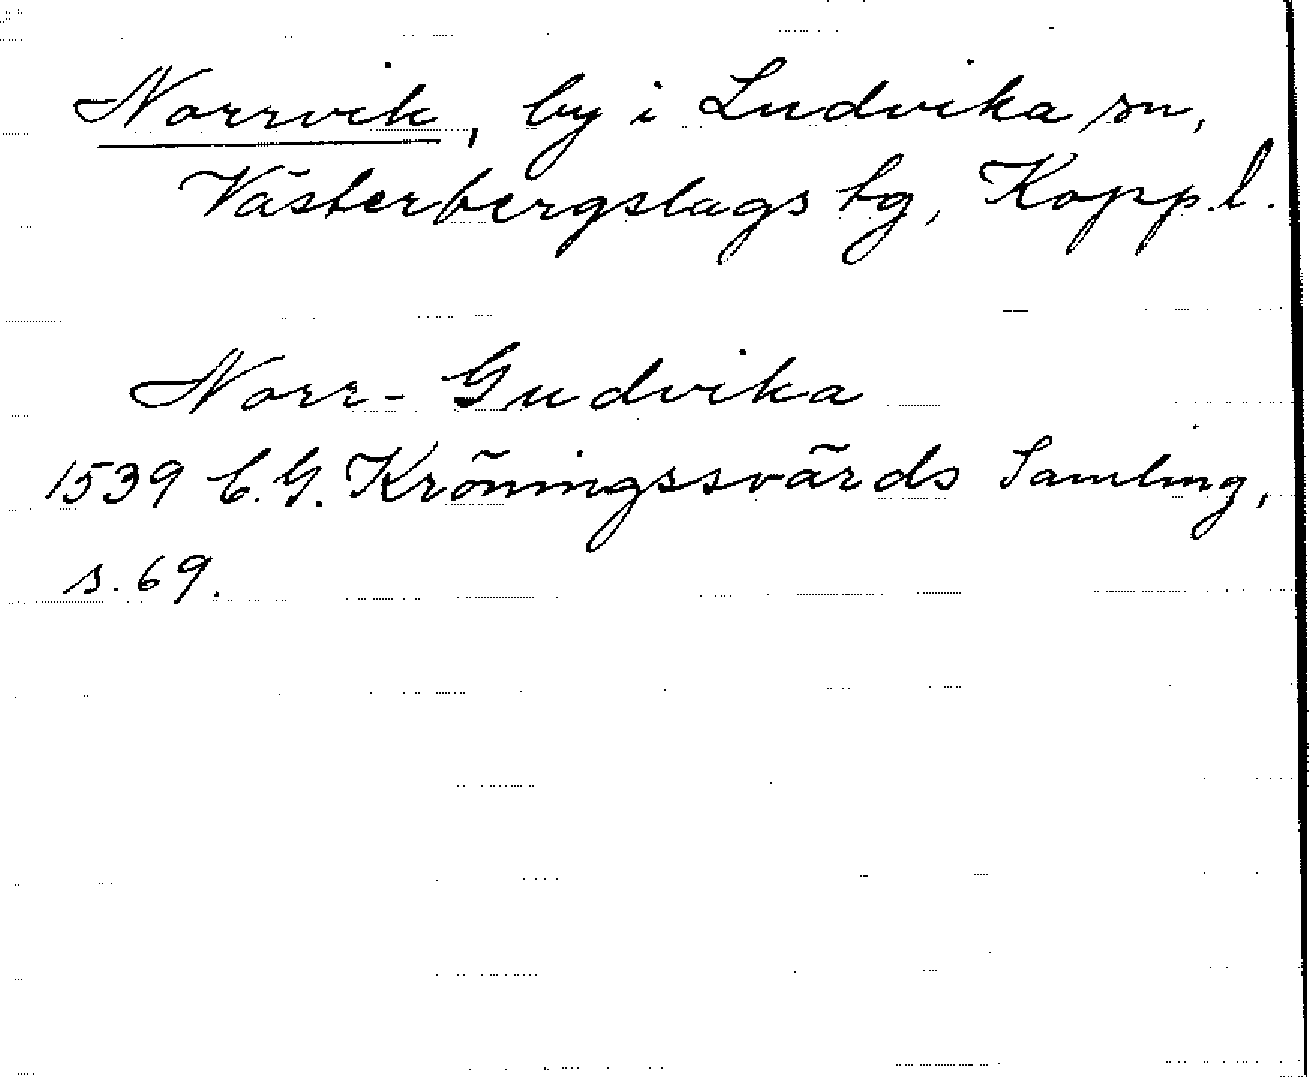 Norrvik, by i Ludvika sn,
Västerbergslags tg, Kopp.l.
Norr-Gudvika
1539 C.G. Kröningssvärds Samling,
s. 69.